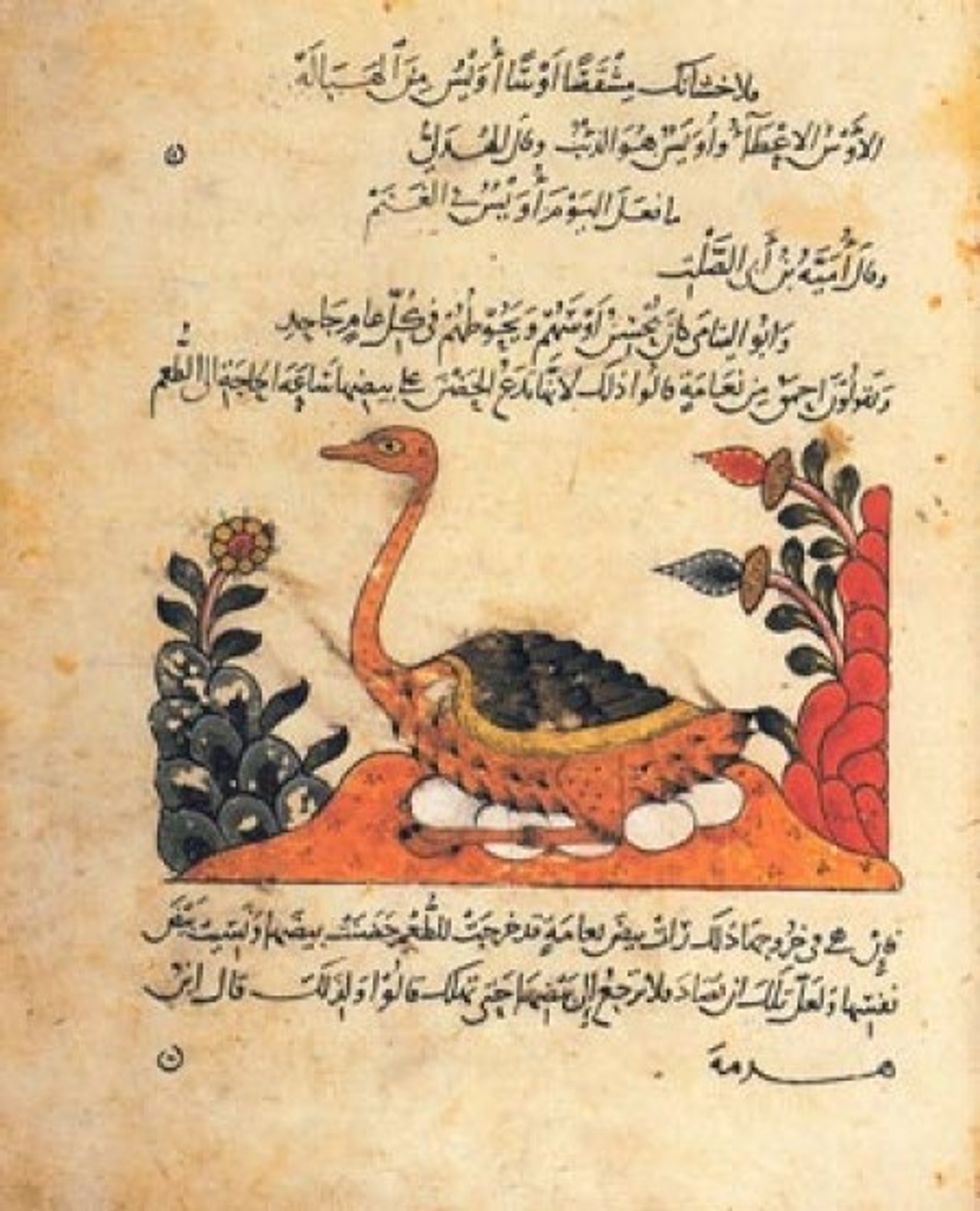 فلاحشانك مِشْقَصًا اَوْسًا أُوَيْسُ مِنَ الهَبَالَهْ
الاَوْسُ الاِعْطَآءُ وأُوَيس هُوَ الذئب وقال الهُذَلِيُّ
ما فعَلَ اليَوْمَ أُوَيْسٌ في الغَنَمْ
وقالَ أُمَيَّةُ بنُ أَبى الصَّلْتِ
وَابُو اليتَامَى كانَ يُحْسِنُ اَوْسَهُمْ وَيَحُوطُهُمْ فى كُلِّ عامٍ جَاحِدِ
وَيَقولُونَ اَحمَقُ مِن نَعَامَةٍ قالوا ذلك لانَّها تدَعُ الحَضْنَ على بيضِها سَاعَةَ الحاجَةِ الى الطُّعم
فإن هى فى خرُوجهَا ذلك رَأت بيضَ نعامَةٍ قد خرجت للطُّعم حَضَنَتْ بيضَها ونَسِيَت بَيْضَ
نفسِها وَلعَلّ تلك ان تصَادَ فلا ترجعُ إلى بَيضِها حَتى تهلك قالُوا وَلِذلكَ قال ابنُ
هرمة